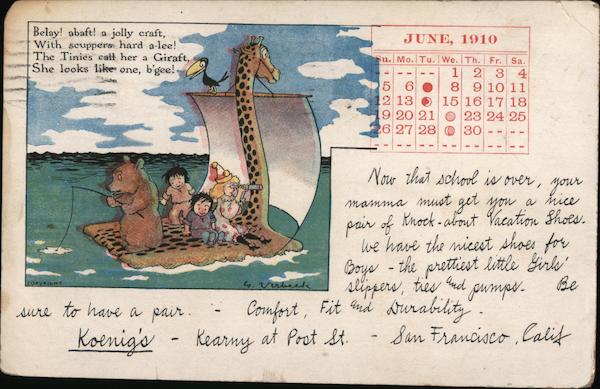 Belay! abaft! a jolly craft,
With scuppers hard a-lee!
The Tinies call her a Giraft,
She looks like one, b'gee!
JUNE, 1910
Su. Mo. Tu. We. Th. Fr. Sa.
- - - 1 2 3 4
5 6 8 9 10 11
12 13 15 16 17 18
19 20 21 23 24 25
26 27 28 30 - -
Now that school is over, your
mamma must get you a nice
pair of Knock-about Vacation Shoes.
We have the nicest shoes for
Boys - the prettiest little Girls'
slippers, ties and pumps. Be
COPYRIGHT G. Verbeek
sure to have a pair. - Comfort, Fit and Durability.
Koenig's - Kearny at Post St. - San Francisco, Calif